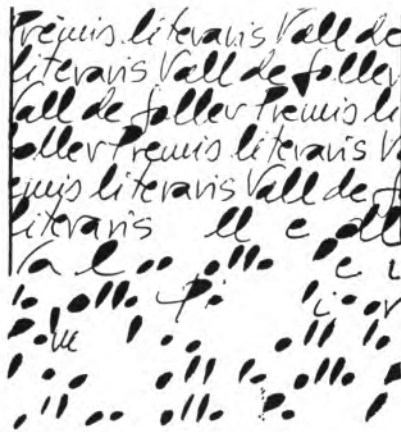 Premis literaris Vall de
literaris Vall de Soller
Vall de Soller Premis li
oller Premis literaris V
emis literaris Vall de S
literaris ll e oll
Va l